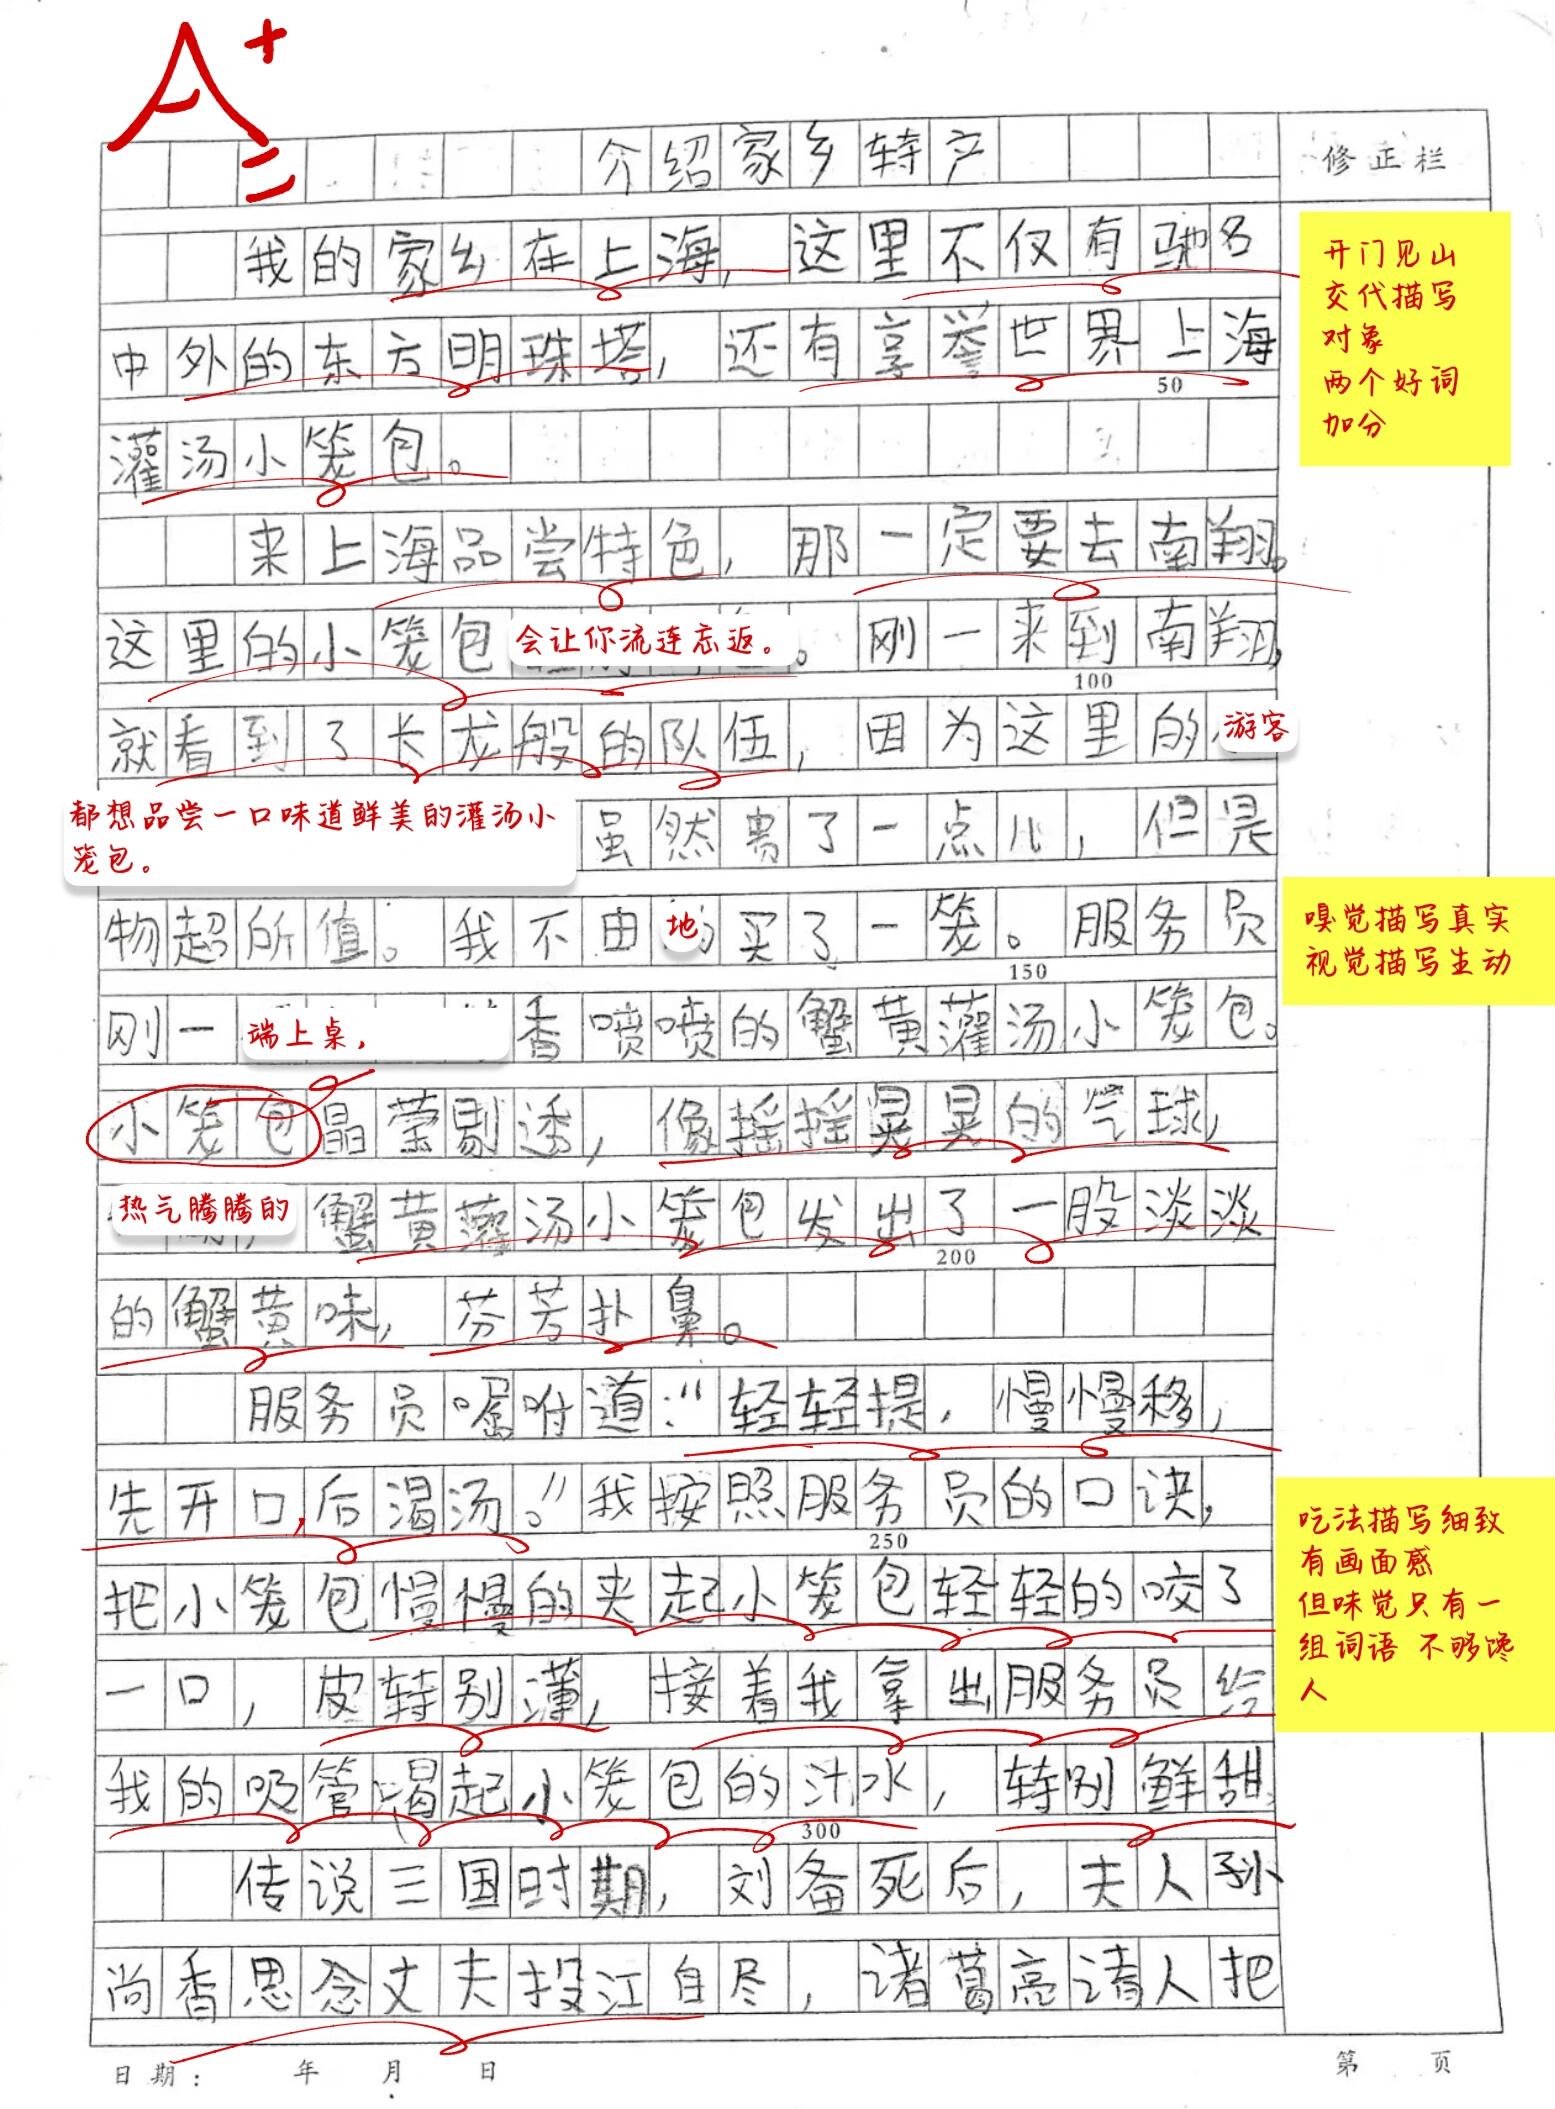 A+
介绍家乡特产
修正栏
我的家乡在上海，这里不仅有驰名
中外的东方明珠塔，还有享誉世界上海
50
灌汤小笼包。
开门见山
交代描写
对象
两个好词
加分
来上海品尝特色，那一定要去南翔。
这里的小笼包会让你流连忘返。刚一来到南翔，
100
就看到了长龙般的队伍，因为这里的游客
都想品尝一口味道鲜美的灌汤小
笼包。
虽然贵了一点儿，但是
物超所值。我不由地买了一笼。服务员
150
嗅觉描写真实
视觉描写生动
刚一端上桌，香喷喷的蟹黄灌汤小笼包。
小笼包晶莹剔透，像摇摇晃晃的气球，
热气腾腾的蟹黄灌汤小笼包发出了一股淡淡
200
的蟹黄味，芬芳扑鼻。
服务员嘱咐道：“轻轻提，慢慢移，
先开口，后渴汤。”我按照服务员的口诀，
250
把小笼包慢慢的夹起小笼包轻轻的咬了
一口，皮特别薄，接着我拿出服务员给
我的吸管喝起小笼包的汁水，特别鲜甜。
300
吃法描写细致
有画面感
但味觉只有一
组词语 不够馋
人
传说三国时期，刘备死后，夫人孙
尚香思念丈夫投江自尽，诸葛亮请人把
日期： 年 月 日
第 页